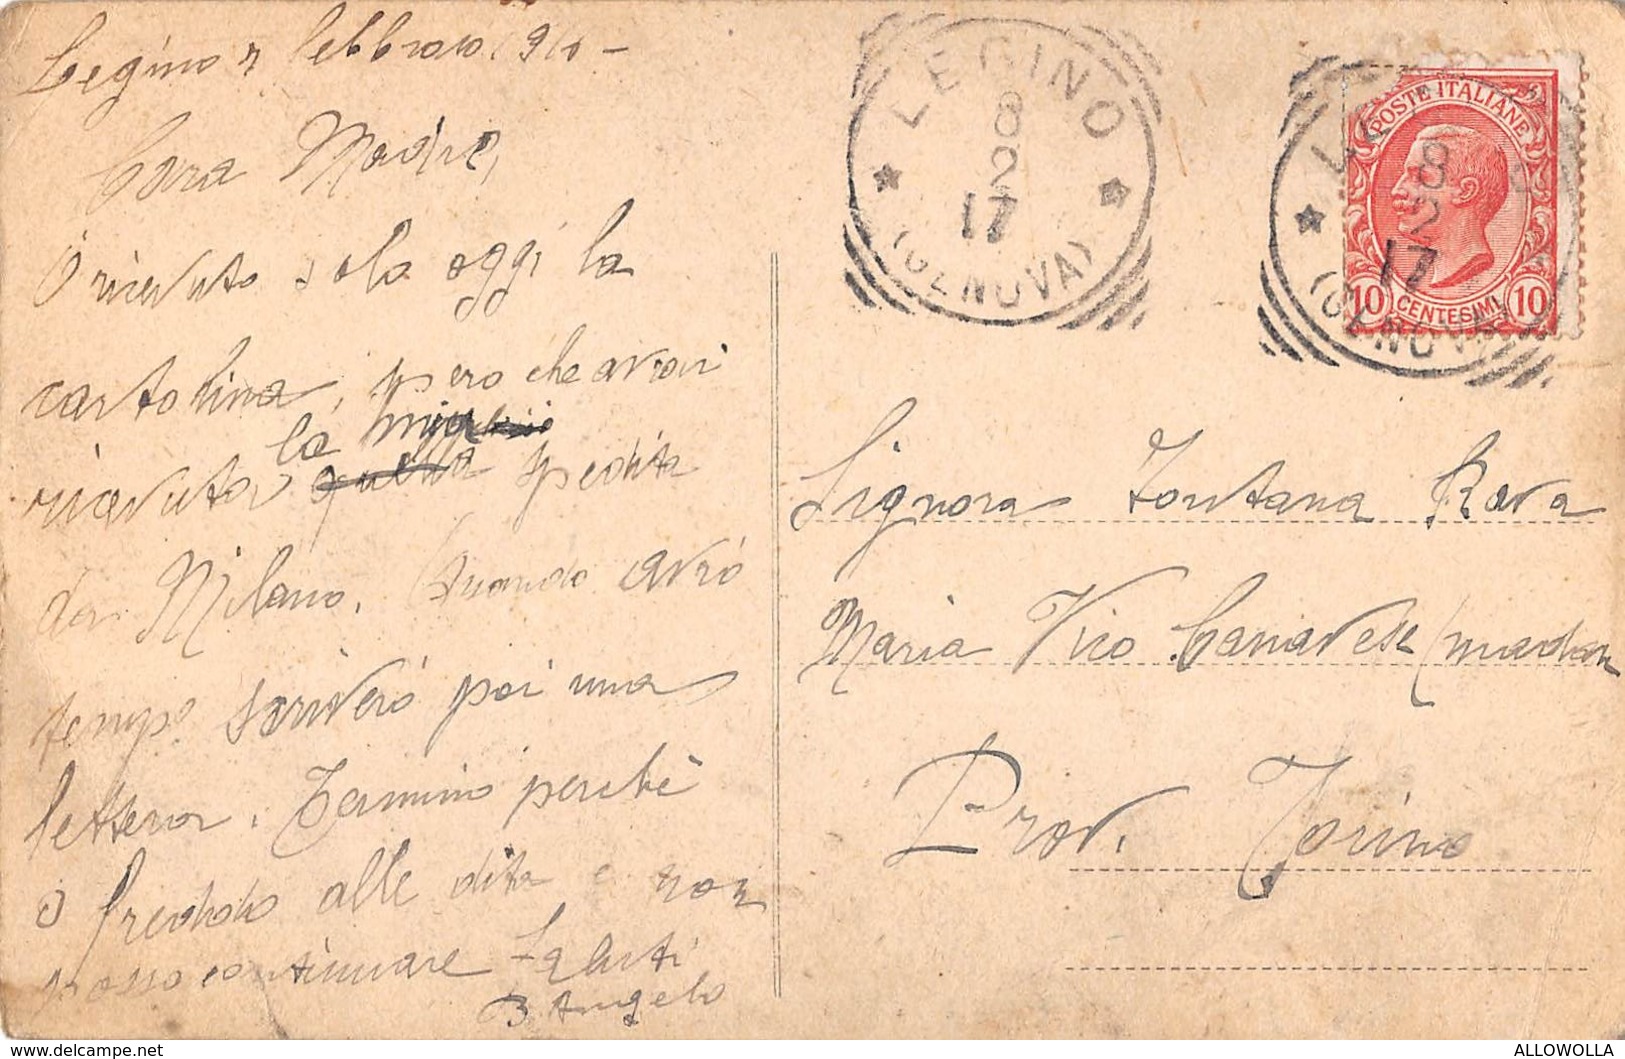 Legino 7 febbraio 191
Cara Madre,
O ricevuto solo oggi la
cartolina, pero che avrai
ricevuto la mia spedita
da Milano. Quando avrò
tempo scriverò poi una
lettera. Termino perchè
ò freddo alle dita e non
posso continuare Saluti
B Angelo
LEGINO
8
2
17
(GENOVA)
POSTE ITALIANE
10 CENTESIMI 10
8
2
17
(GENOVA)
Signora Fontana Rava
Maria Vico Canavese
Prov. Torino
www.delcampe.net
ALLOWOLLA